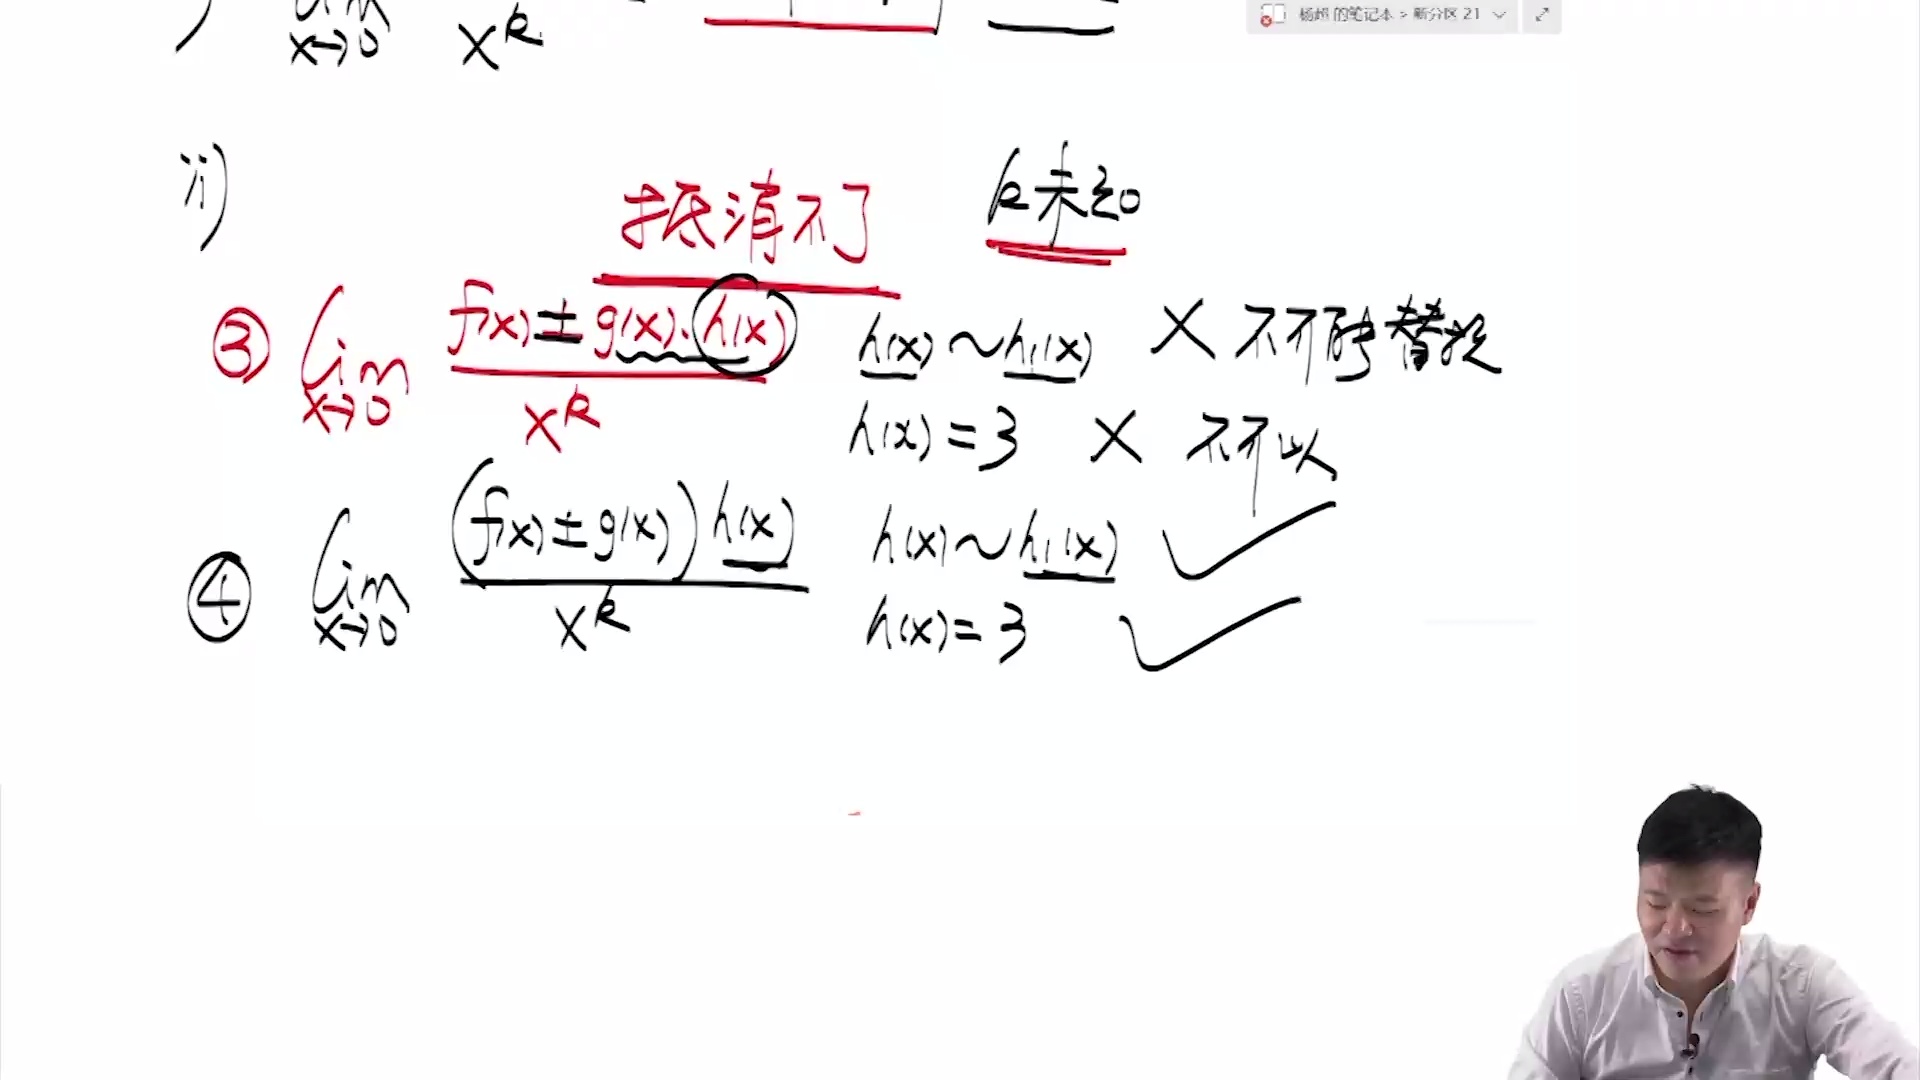 杨超 的笔记本 > 新分区 21
lim x→0 x^k
ii) 抵消不了 k未知
③ lim x→0 (f(x) ± g(x)·h(x)) / x^k h(x) ~ h₁(x) × 不可能替换
h(x) = 3 × 不可以
④ lim x→0 (f(x) ± g(x)) h(x) / x^k h(x) ~ h₁(x) ✓
h(x) = 3 ✓